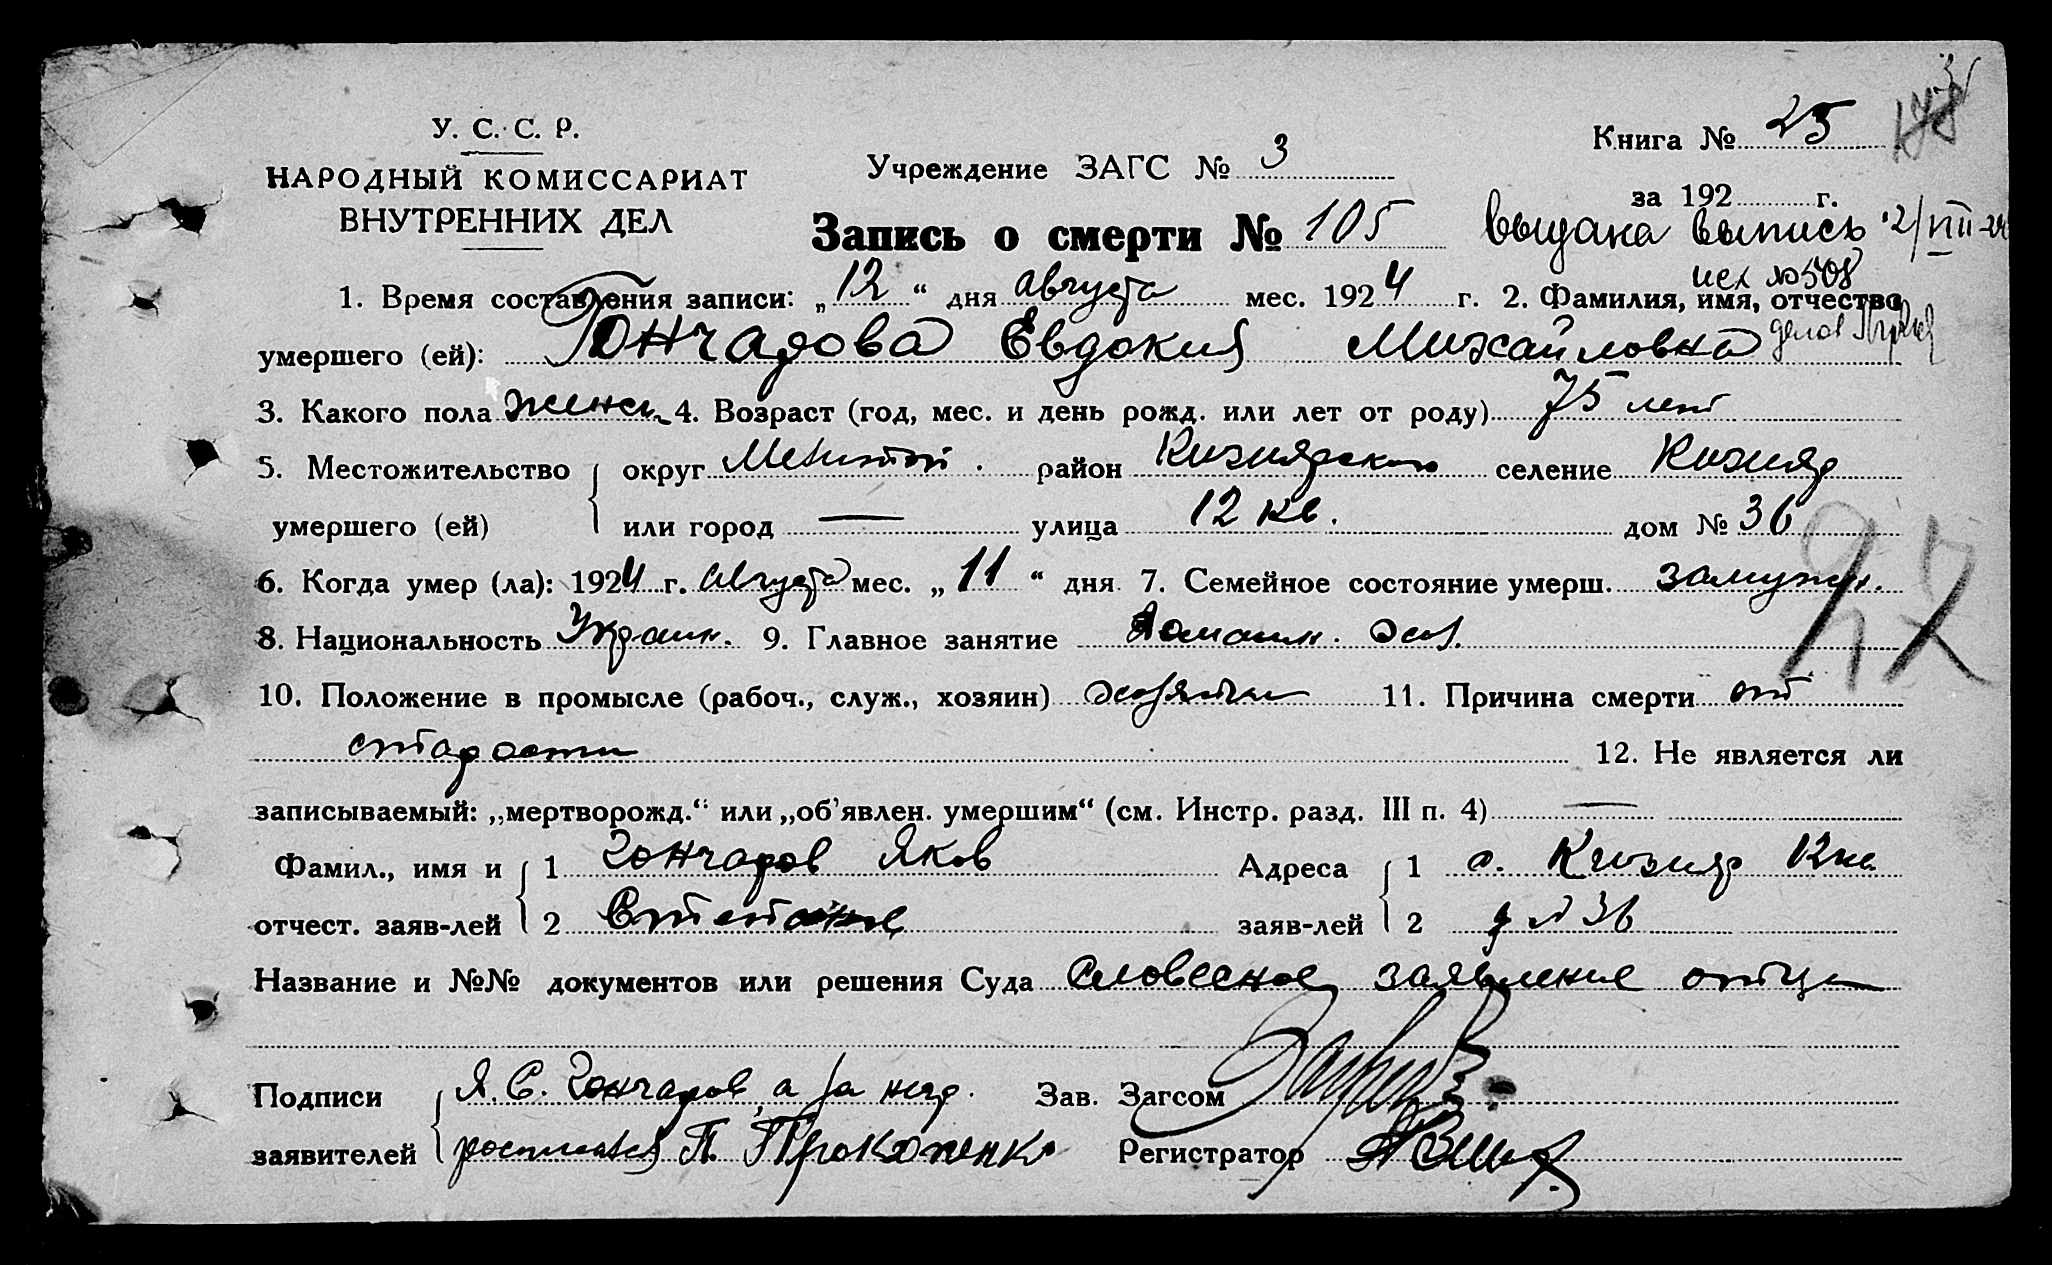 У. С. С. Р.
НАРОДНЫЙ КОМИССАРИАТ
ВНУТРЕННИХ ДЕЛ
Учреждение ЗАГС № 3
Книга № 25
за 192 г.
Запись о смерти № 105
выдана выпись 12/VIII-24
исх №508
1. Время составления записи: „12“ дня августа мес. 1924 г. 2. Фамилия, имя, отчество
умершего (ей): Гончарова Евдокия Михайловна
3. Какого пола женск 4. Возраст (год, мес. и день рожд. или лет от роду) 75 лет
5. Местожительство округ Мелитоп. район Кизиярского селение Кизияр
умершего (ей) или город — улица 12 кв. дом № 36
6. Когда умер (ла): 1924 г. августа мес. „11“ дня. 7. Семейное состояние умерш. замужн.
8. Национальность Украин. 9. Главное занятие домашн. хоз.
10. Положение в промысле (рабоч., служ., хозяин) хозяйка 11. Причина смерти от
старости 12. Не является ли
записываемый: „мертворожд.“ или „об'явлен. умершим“ (см. Инстр. разд. III п. 4) —
Фамил., имя и 1 Гончаров Яков Адреса 1 с. Кизияр 12 кв.
отчест. заяв-лей 2 заяв-лей 2 д № 36
Название и №№ документов или решения Суда Словесное заявление отца
Подписи Я. С. Гончаров, а за негр. Зав. Загсом
заявителей росписался П. Прокопенко Регистратор